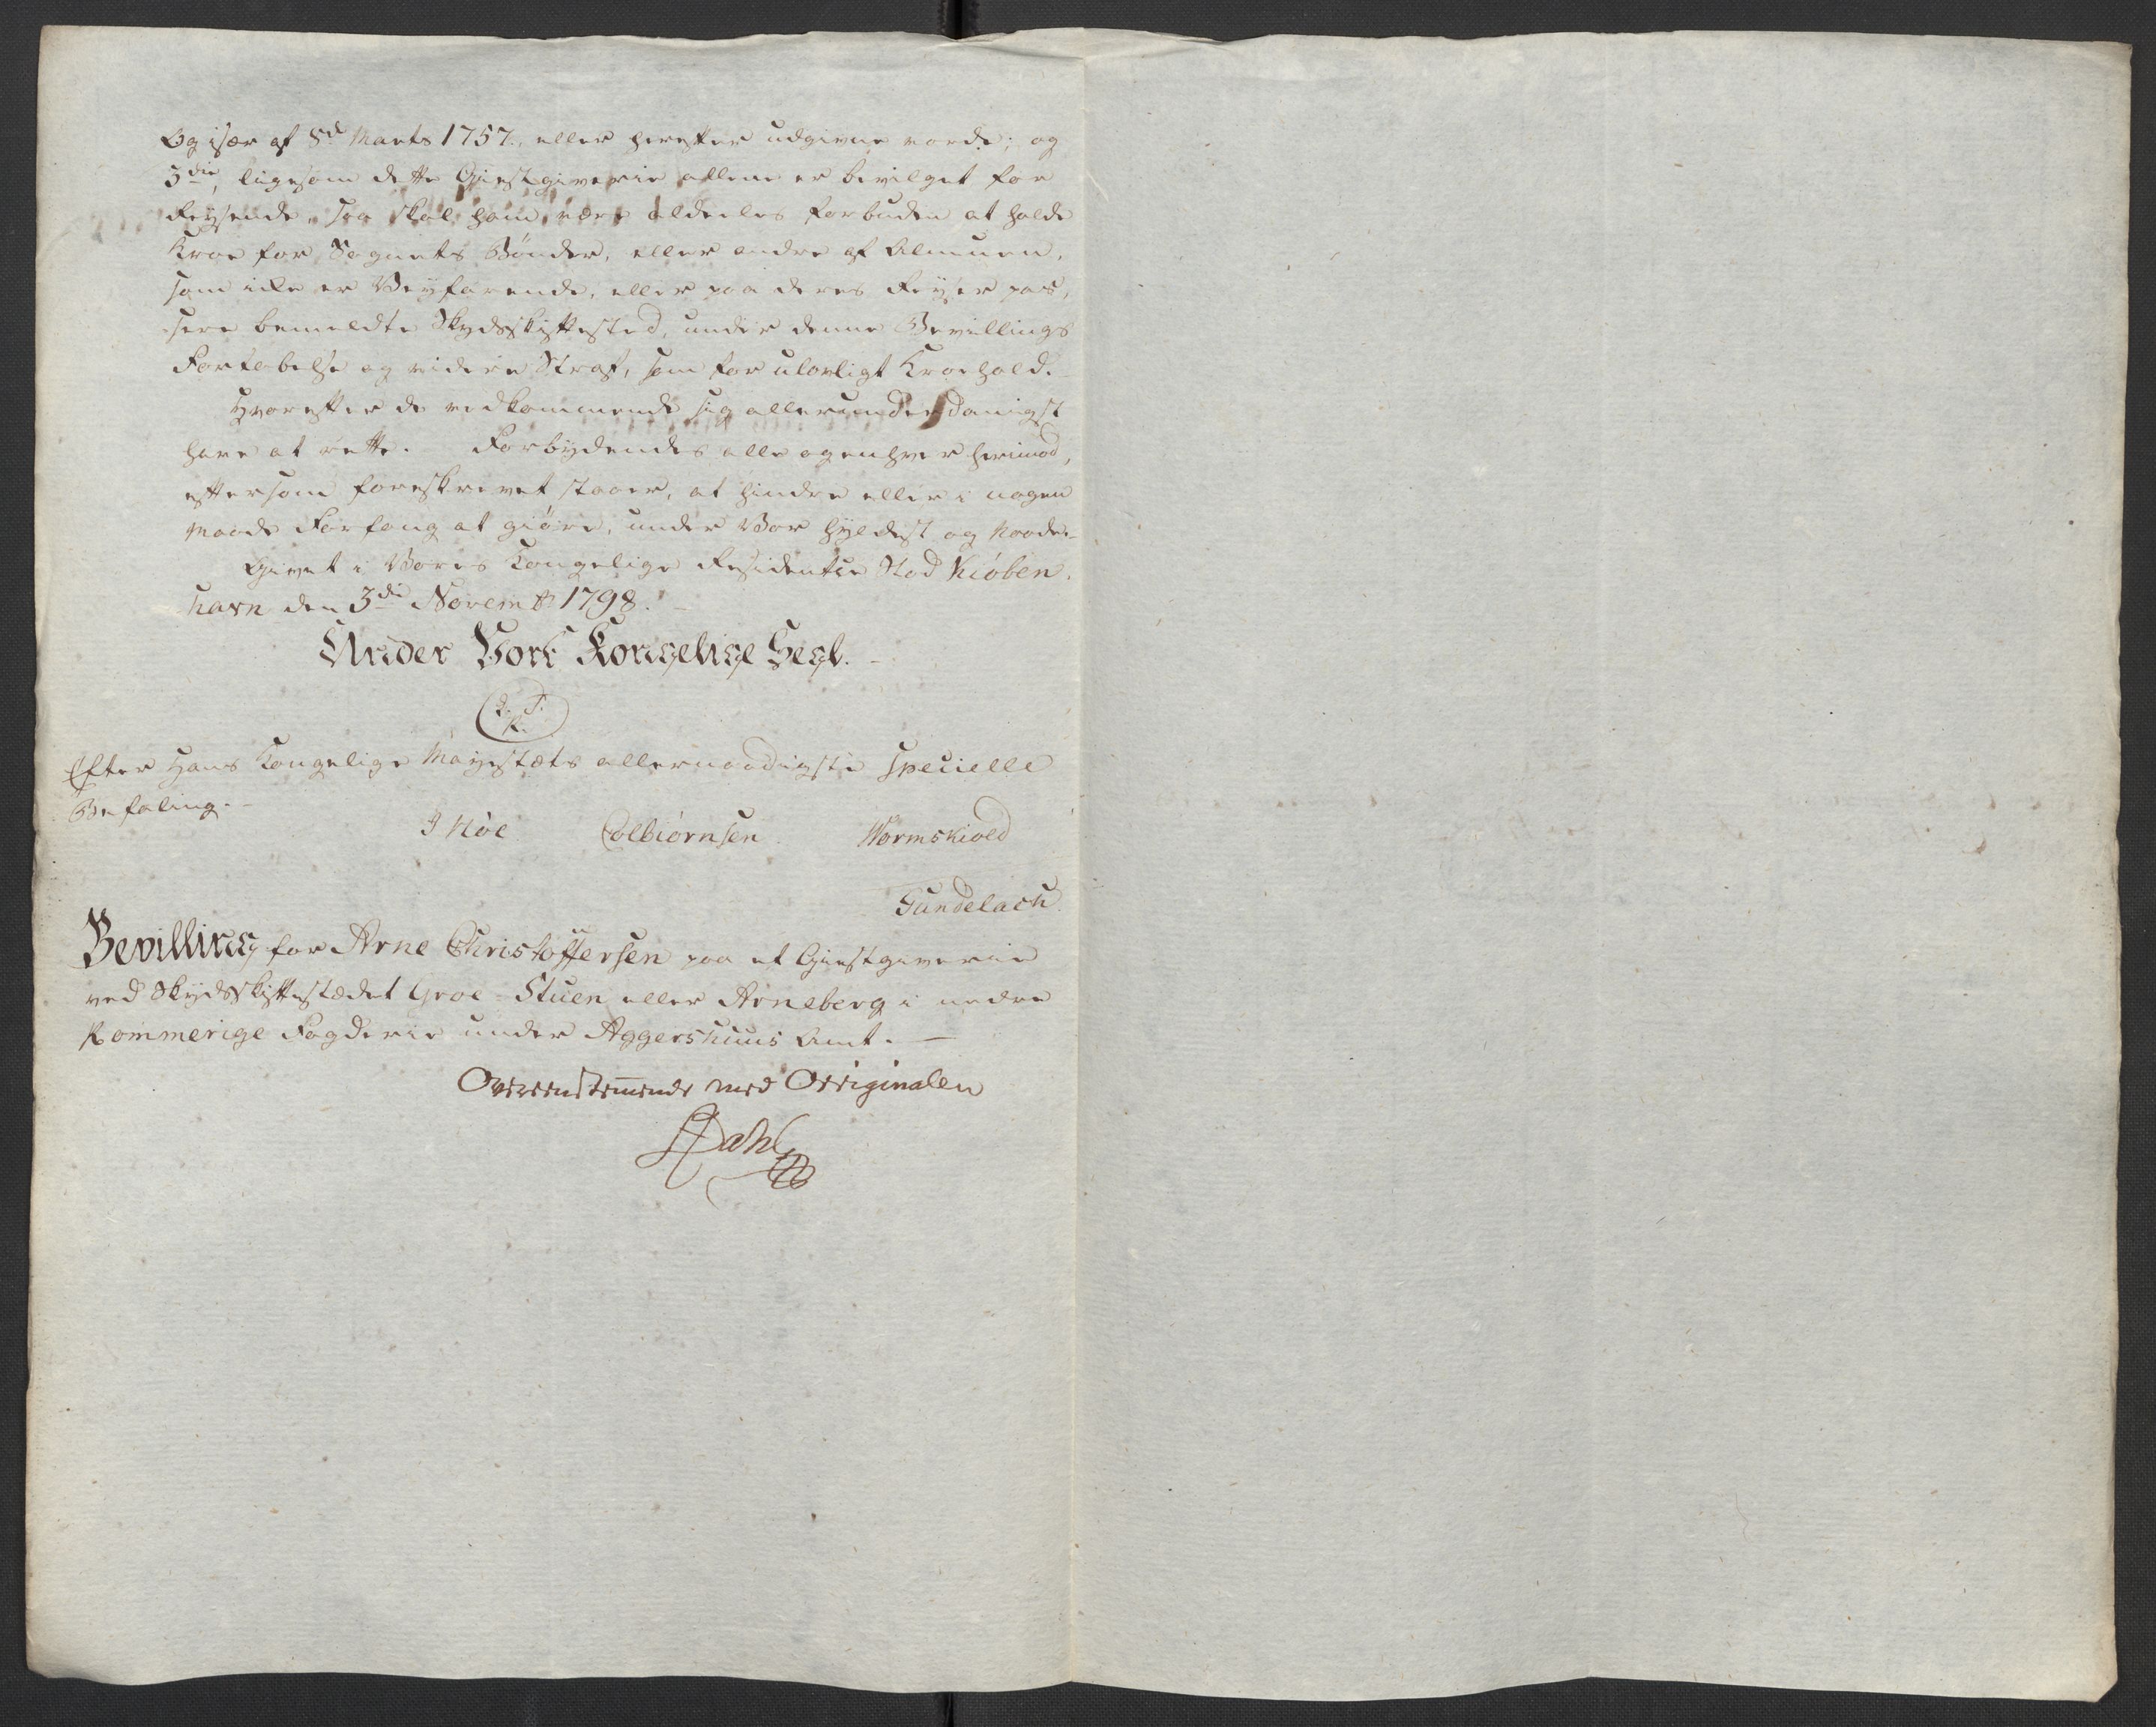 Og især af 8d Marts 1757., eller herefter udgivne vorde; og
3die, ligesom dette Giestgiverie allene er bevilget for
Reysende, saa skal ham være aldeeles forbuden at holde
Kroe for Sognets Bønder, eller andre af Almuen,
som icke er Veyfarende, eller paa deres Reyser pas,
sere bemeldte Skydsskiftested, under denne Bevillings
Fortabelse og videre Straf, som for ulovligt Kroehold.
Hvorefter de vedkommende sig allerunderdanigst
have at rette. Forbydendes alle og enhver herimod,
eftersom foreskrevet staaer, at hindre eller i nogen
Maade Forfang at giøre, under Vor Hyldest og Naade.
Givet i Vores Kongelige Residentze Stad Kiøben,
havn den 3die Novembr 1798.
Under Vort Kongelige Segl.
Efter Hans Kongelige Mayestæts allernaadigste specielle
Befaling.
J Höe Colbiørnsen. Wormskiold
Gundelach.
Bevilling for Arne Christoffersen paa et Giestgiverie
ved Skydsskiftestædet Groe-Stuen eller Arneberg i nedre
Rommerige Fogderie under Aggershuus Amt.
Overeenstemende med Originalen
Dahl